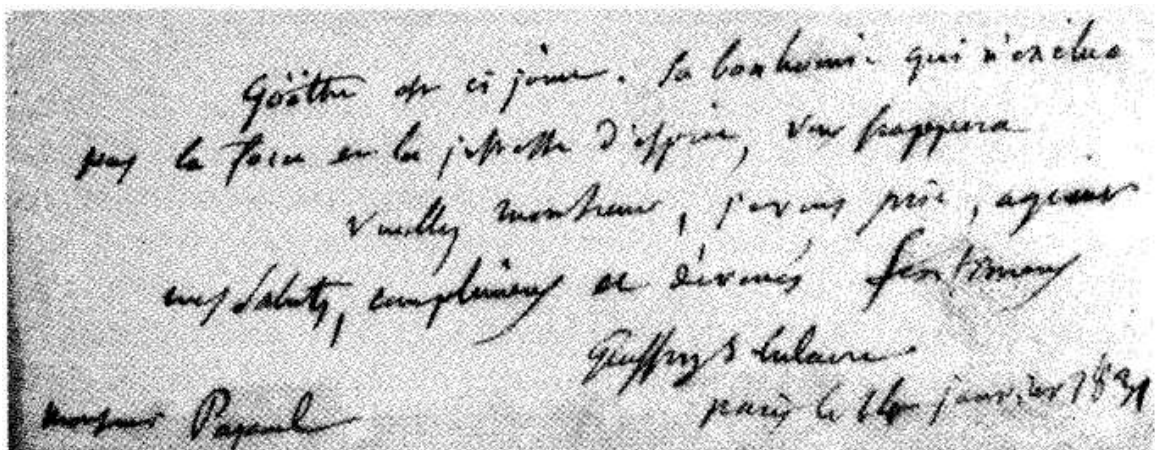 Göethe est ci joint. Sa bonhomie qui n'exclue
pas la force ou la justesse d'esprit, vous frappera
Veuillez monsieur, je vous prie, agréer
mes saluts, complimens et dévoués sentimens
Geoffroy St hilaire
paris le 14 janvier 1831
monsieur